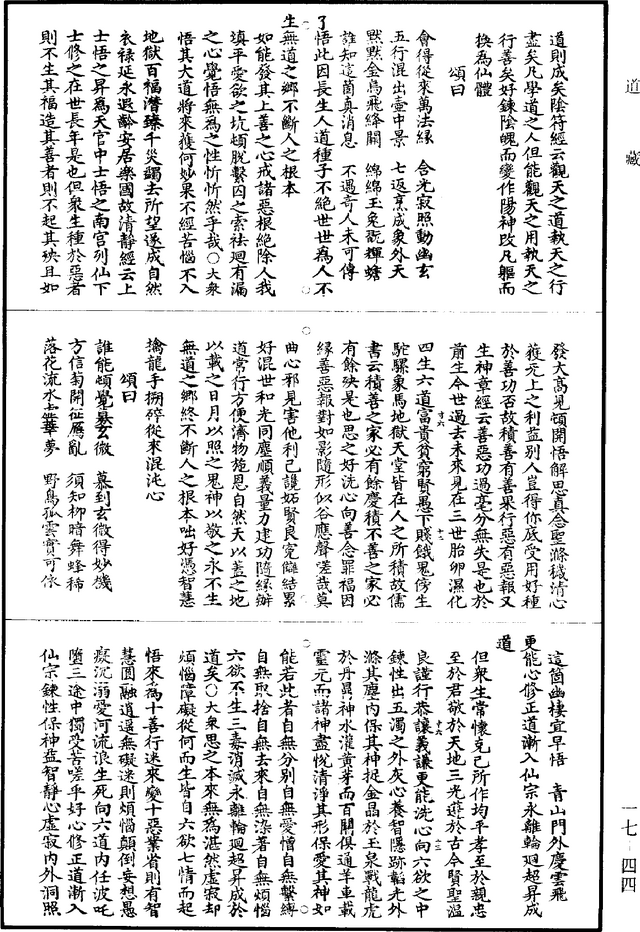 道藏
一七-四四
道則成矣陰符經云觀天之道執天之行
盡矣凡學道之人但能觀天之用執天之
行善矣好鍊陰魄而變作陽神改凡軀而
換為仙體
頌曰
會得從來萬法緣　合光寂照動幽玄
五行混出壺中景　七返烹成象外天
黙黙金烏飛絳闕　綿綿玉兔翫輝蟾
誰知這箇真消息　不遇奇人未可傳
悟此因長生人道種子不絕世世為人不
了
生無道之鄉不斷人之根本
如能發其上善之心戒諸惡根絕除人我
滇平愛欲之坑頓脫繫囚之索祛迴有漏
之心覺悟無為之性忻忻然乎哉○大衆
悟其大道將來獲何妙果不經苦惱不入
地獄百福濳臻千災蠲去所望遂成自然
衣祿延永遐齡安居樂國故清靜經云上
士悟之昇為天官中士悟之南宮列仙下
士修之在世長年是也但衆生種於惡者
則不生其福造其善者則不起其殃且如
發大高見頓開悟解思真念聖滌穢清心
獲无上之利益別人豈得你底受用好種
於善功否故積善有善果行惡有惡報又
生神章經云善惡功過毫分無失是也於
前生今世過去未來見在三世胎卵濕化
四生六道富貴貧窮賢愚下賤餓鬼傍生
駝騾象馬地獄天堂皆在人之所積故儒
書云積善之家必有餘慶積不善之家必
有餘殃是也思之好洗心向善念罪福因
緣善惡報對如影隨形似谷應聲嗟哉莫
曲心邪見害他利己謗妬賢良寃讎結累
好混世和光同塵順義量力建功隨緣辦
道常行方便濟物施恩自然天以蓋之地
以載之日月以照之鬼神以敬之永不生
無道之鄉終不斷人之根本咄好憑智慧
擒龍手搠碎從來混沌心
頌曰
誰能頓覺慕玄微　慕到玄微得妙機
方信菊開征鴈亂　須知柳暗舞蜂稀
落花流水虛華夢　野鳥孤雲實可依
這箇幽棲宜早悟　青山門外慶雲飛
更能心修正道漸入仙宗永離輪迴超昇成
道
但衆生常懷克己所作均平孝至於親忠
至於君敬於天地三光遊於古今賢聖溫
良謹行恭讓義讓更能洗心向六欲之中
鍊性出五濁之外灰心養智隱跡韜光外
滌其塵内保其神捉金晶於玉泉戰龍虎
於丹鼎神水灌黃芽而百關俱通羊車載
靈元而諸神盡悅清淨其形保愛其神如
能若此者自無分別自無愛憎自無繫縛
自無取捨自無去來自無染著自無煩惱
六欲不生三毒消滅永離輪迴超昇成於
道矣○大衆思之本來無為湛然虛寂却
煩惱障礙從何而生皆自六欲七情而起
悟來為十善行迷來變十惡業省則有智
慧圓融逍遥無礙迷則煩惱顛倒妄想愚
癡沉溺愛河流浪生死向六道内任波吒
墮三途中獨受苦嗟乎好心修正道漸入
仙宗鍊性保神益智靜心虛寂内外洞照